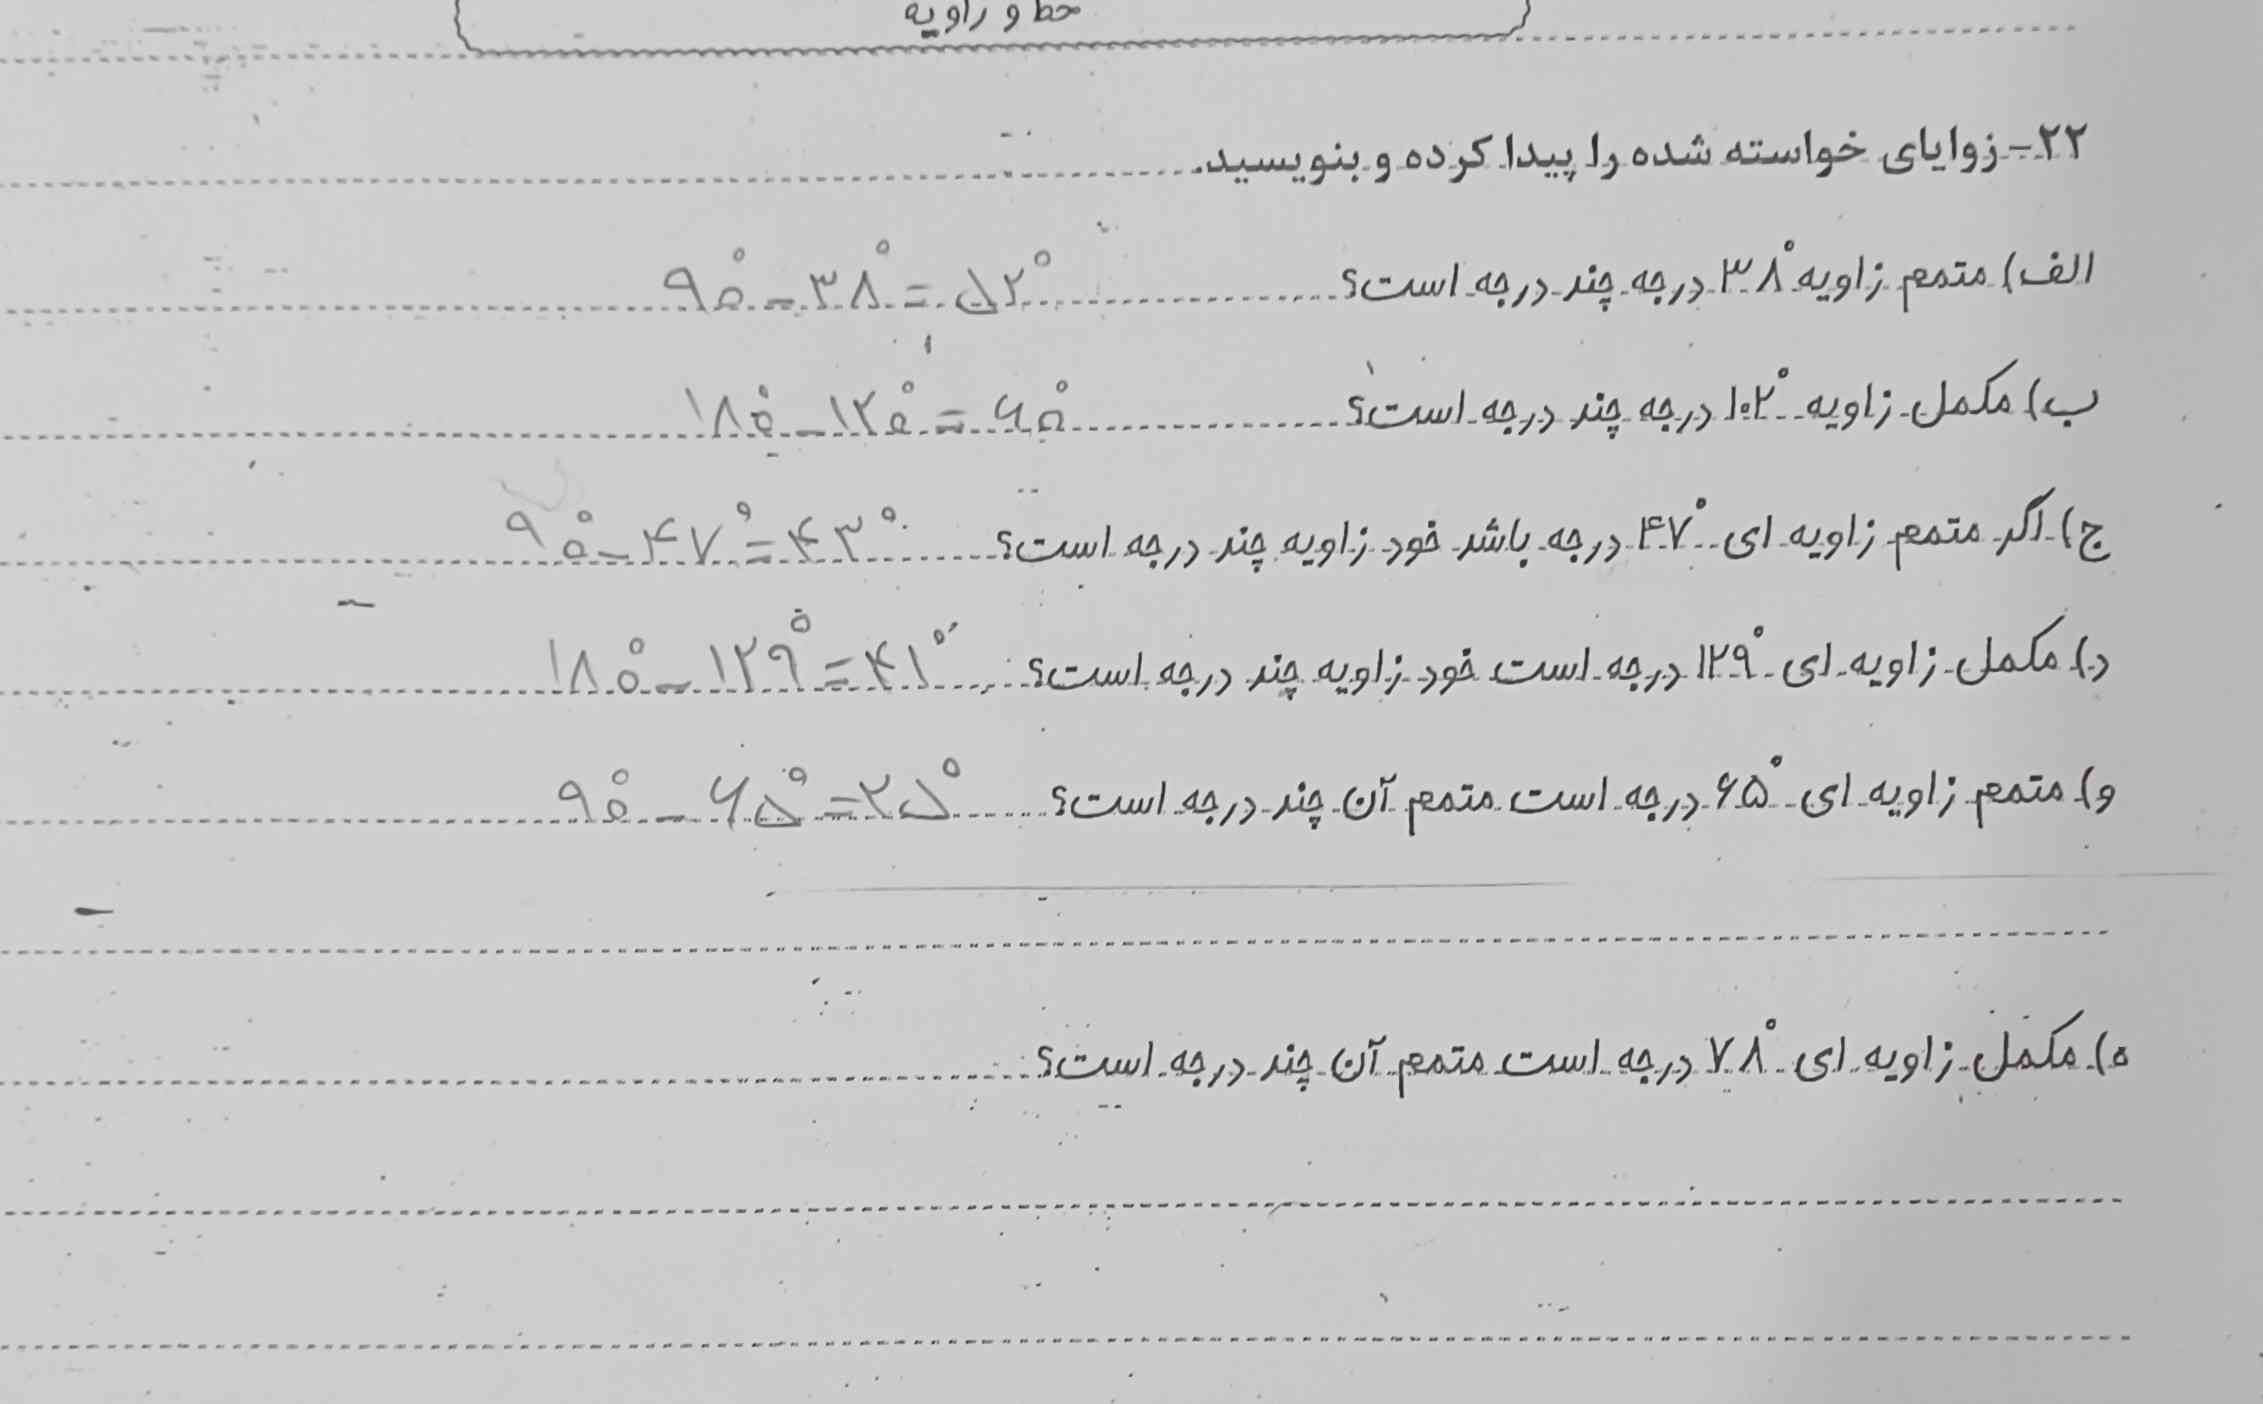 خط و زاویه
۲۲- زوایای خواسته شده را پیدا کرده و بنویسید.
الف) متمم زاویه ۳۸° درجه چند درجه است؟ ۹۰° - ۳۸° = ۵۲°
ب) مکمل زاویه ۱۰۲° درجه چند درجه است؟ ۱۸۰° - ۱۲۰° = ۶۰°
ج) اگر متمم زاویه ای ۴۷° درجه باشد خود زاویه چند درجه است؟ ۹۰° - ۴۷° = ۴۳°
د) مکمل زاویه ای ۱۲۹° درجه است خود زاویه چند درجه است؟ ۱۸۰° - ۱۲۹° = ۴۱°
و) متمم زاویه ای ۶۵° درجه است متمم آن چند درجه است؟ ۹۰° - ۶۵° = ۲۵°
ه) مکمل زاویه ای ۷۸° درجه است متمم آن چند درجه است؟